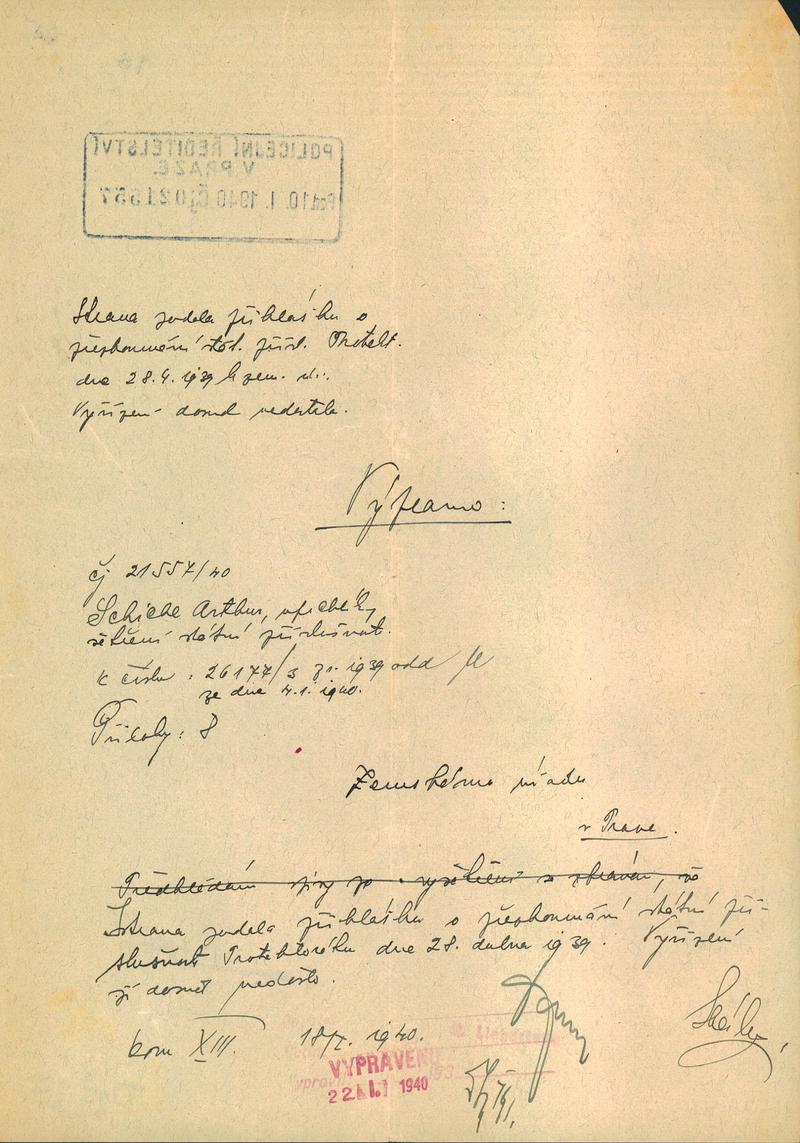 POLICEJNÍ ŘEDITELSTVÍ
V PRAZE.
10.I.1940 Čj 021557
Strana podala přihlášku o
přezkoumání stát. přísl. Protekt.
dne 28.4.1939 k zem. úř.
Vyřízení dosud nedostala.
Výpramo:
čj 21557/40
Schiche Arthur,
šetření státní příslušnost.
K číslu: 26177/3 z r. 1939 odd
ze dne 4.1.1940.
Přílohy: 8
Zemskému úřadu
v Praze.
Předkládám spisy po vyšetření se zprávou, že
Strana podala přihlášku o přezkoumání státní pří-
slušnosti Protektorátu dne 28. dubna 1939. Vyřízení
jí dosud nedošlo.
kom XIII. 18/I. 1940.
VYPRAVENO
22.I. 1940